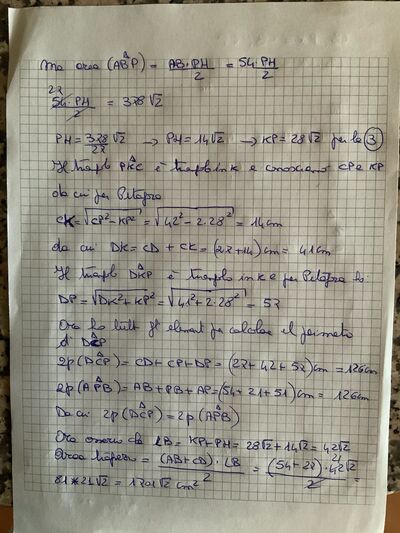 ma area (AB̂P) = AB·PH/2 = 54·PH/2
27 54·PH/2 = 378√2
PH = 378/27 √2 → PH = 14√2 → KP = 28√2 per la ③
Il triangolo PK̂C è triangolo in K e conosciamo CP e KP
da cui per Pitagora
CK = √(CP² - KP²) = √(42² - 2·28²) = 14 cm
da cui DK = CD + CK = (27+14) cm = 41 cm
Il triangolo DK̂P è triangolo in K e per Pitagora ho:
DP = √(DK² + KP²) = √(41² + 2·28²) = 57
Ora ho tutti gli elementi per calcolare il perimetro
di DĈP
2p(DĈP) = CD + CP + DP = (27 + 42 + 57) cm = 126 cm
2p(AP̂B) = AB + PB + AP = (54 + 21 + 51) cm = 126 cm
Da cui 2p(DĈP) = 2p(AP̂B)
Ora osservo che LB = KP + PH = 28√2 + 14√2 = 42√2
Area trapezio = (AB + CD)·LB/2 = (54 + 27)·42 21 √2/2 =
81 * 21√2 = 1701√2 cm²